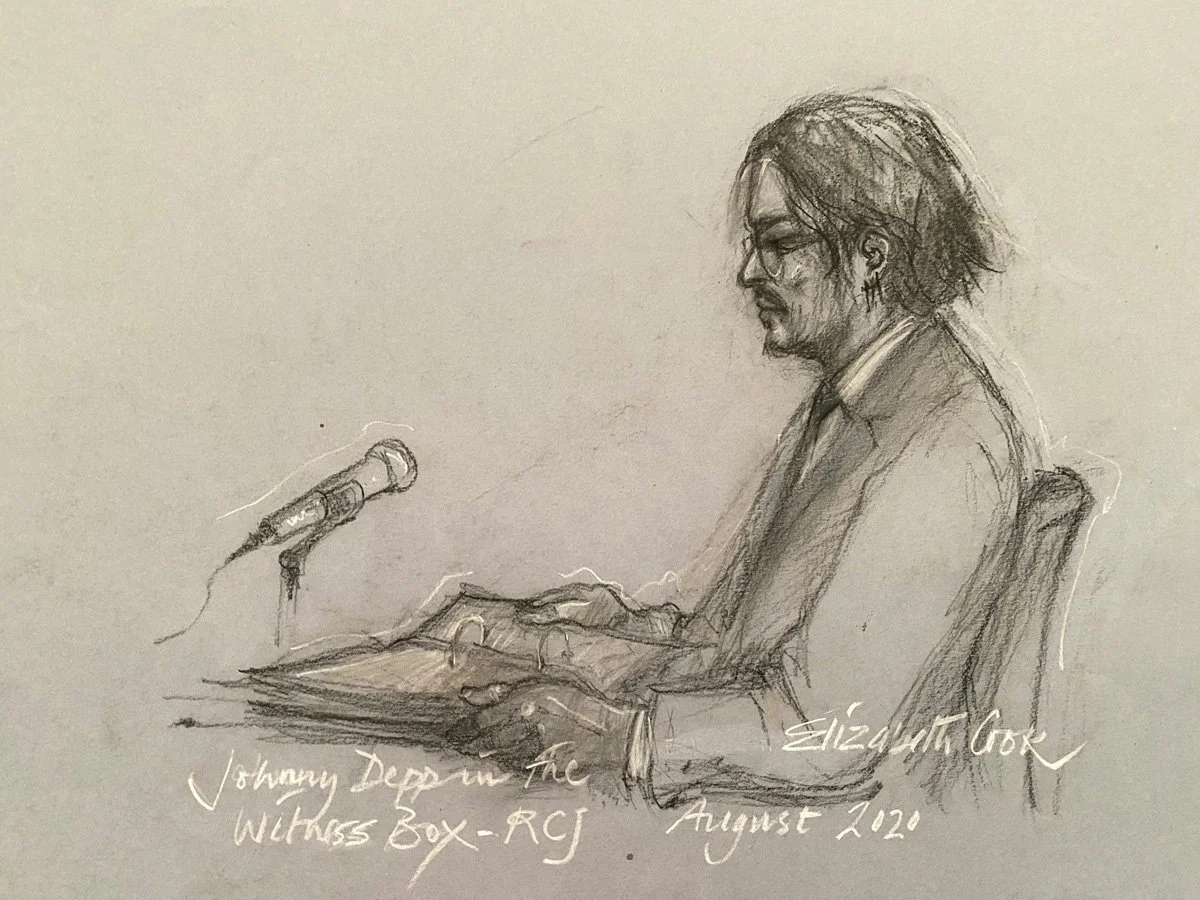 Elizabeth Cook
Johnny Depp in The
Witness Box - RCJ
August 2020